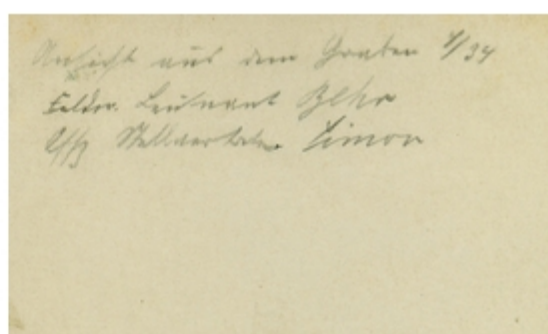 Ansicht aus dem Graben 4/34
Feldw. Leutnant
Offz Stellvertreter Simon